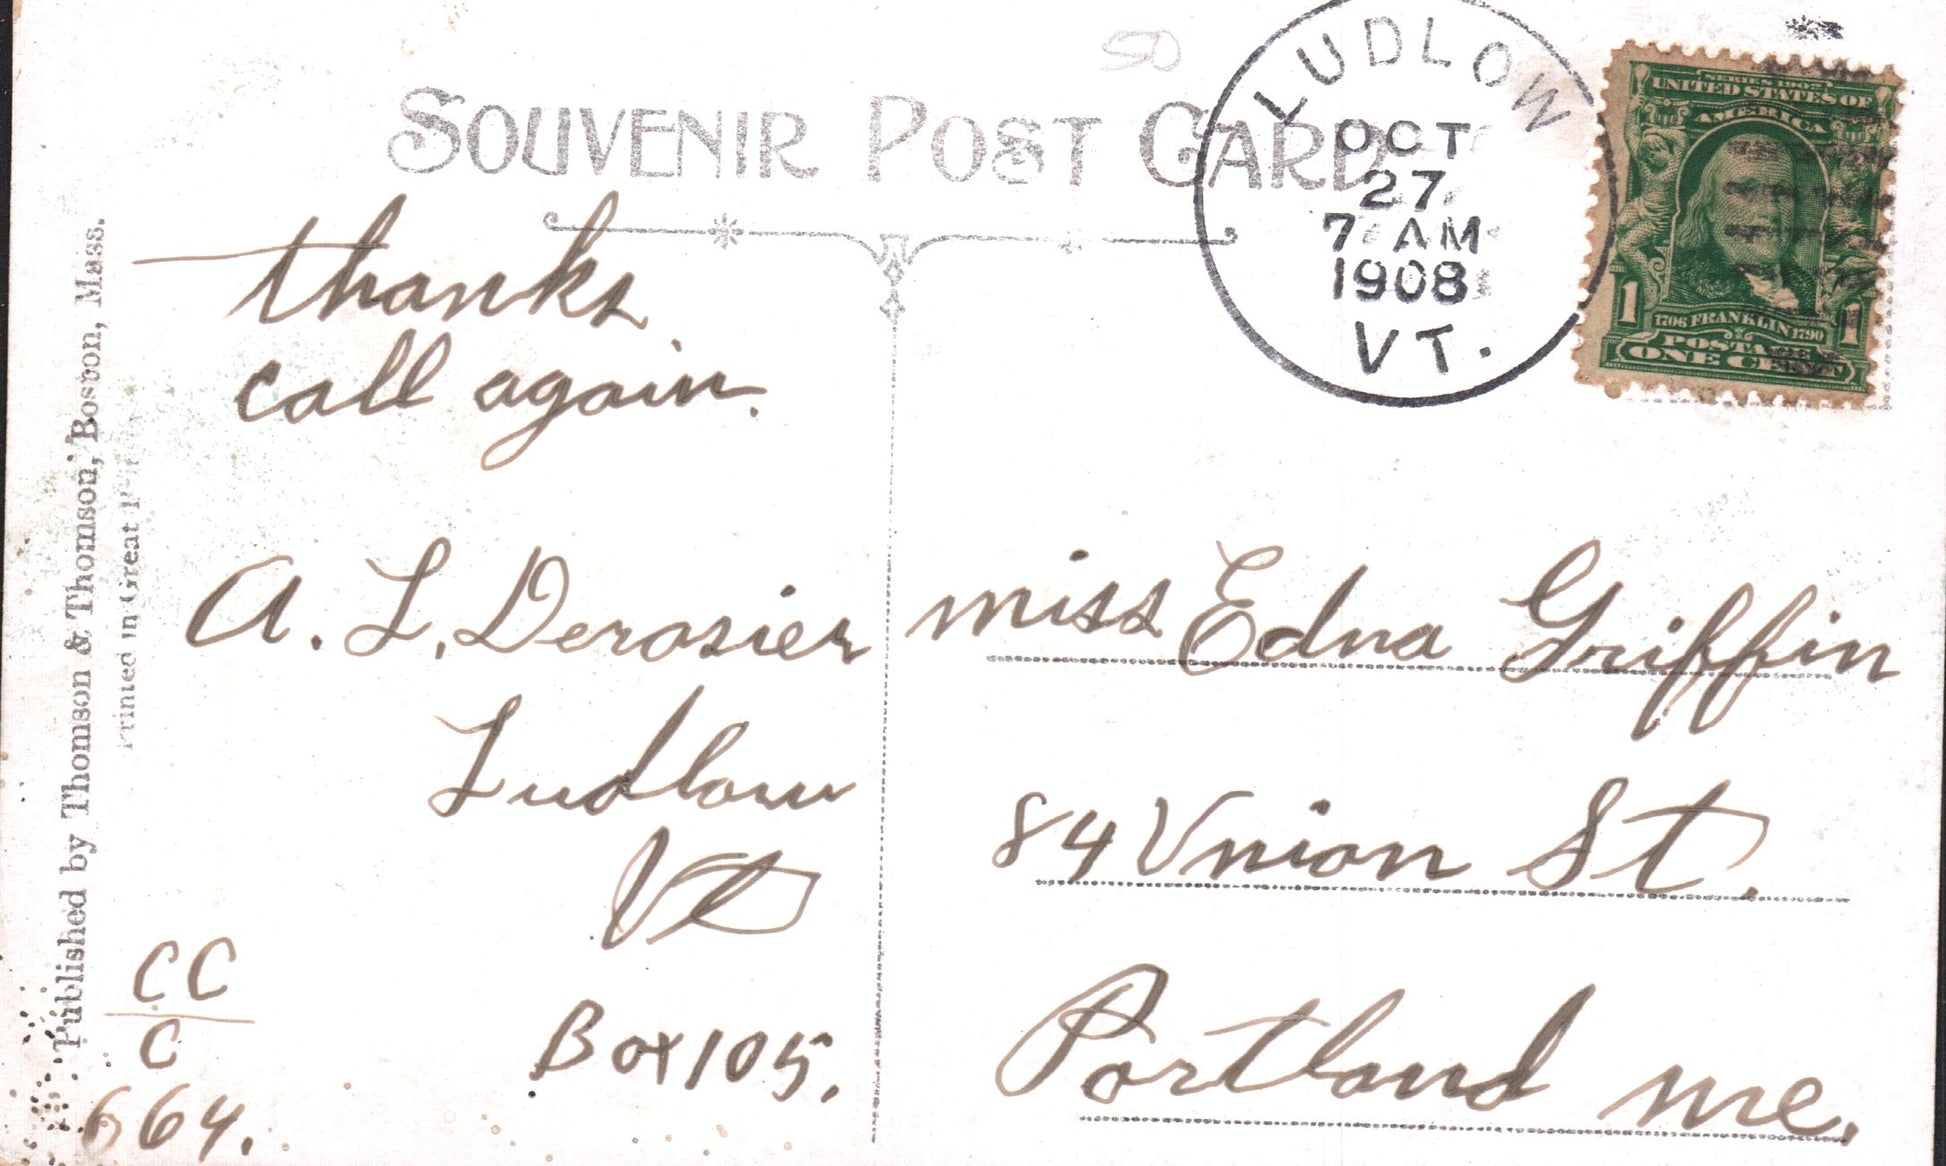 50
SOUVENIR POST CARD
LUDLOW
OCT
27
7 AM
1908
VT.
SERIES 1902
UNITED STATES OF
AMERICA
1706 FRANKLIN 1790
1 1
POSTAGE
ONE CENT
thanks
call again.
A. L. Derosier
Ludlow
Vt
Box 105.
CC
C
664.
miss Edna Griffin
84 Union St.
Portland me.
Published by Thomson & Thomson, Boston, Mass.
Printed in Great